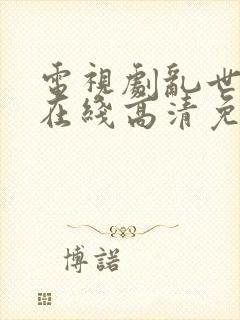 電視劇亂世
在綫高清免
博諾